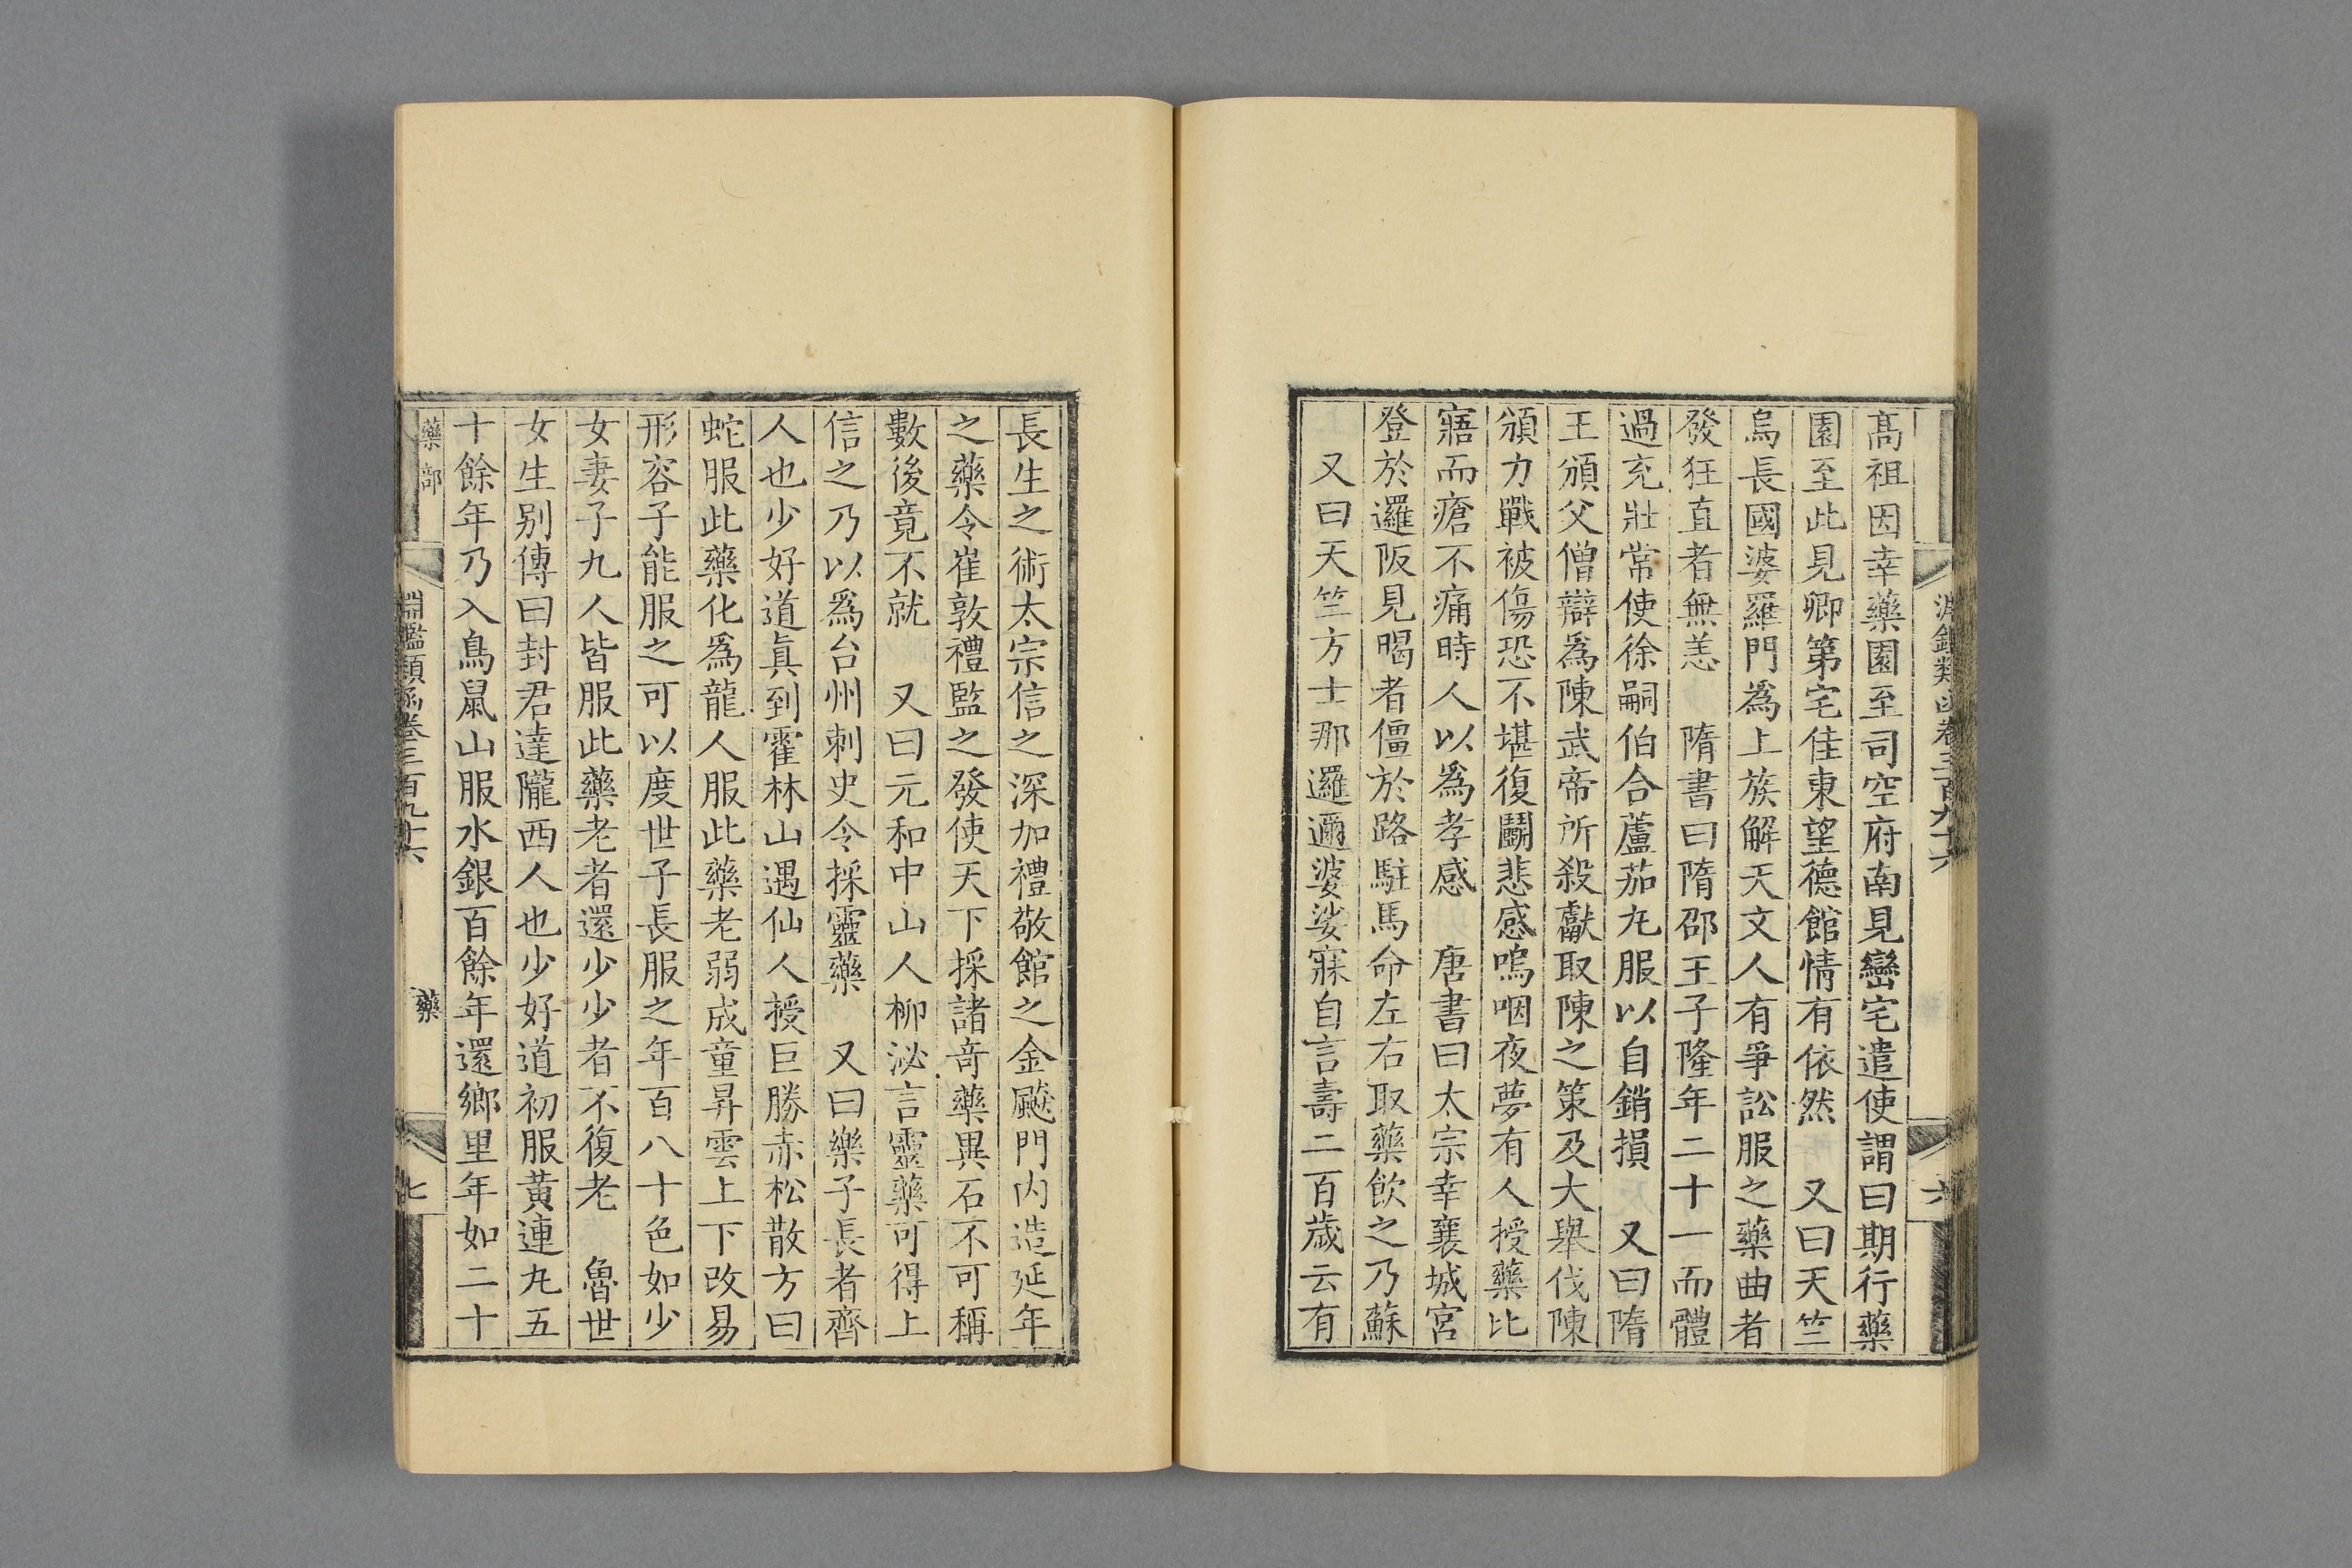 淵鑑類函卷三百九十六
六
髙祖因幸藥園至司空府南見巒宅遣使謂曰期行藥
園至此見卿第宅佳東望德館情有依然　又曰天竺
烏長國婆羅門爲上族解天文人有爭訟服之藥曲者
發狂直者無恙　隋書曰隋邵王子隆年二十一而體
過充壯常使徐嗣伯合蘆茄尢服以自銷損　又曰隋
王頒父僧辯爲陳武帝所殺獻取陳之策及大舉伐陳
頒力戰被傷恐不堪復鬭悲感嗚咽夜夢有人授藥比
寤而瘡不痛時人以爲孝感　唐書曰太宗幸襄城宮
登於邏阪見暍者僵於路駐馬命左右取藥飲之乃蘇
又曰天竺方士那邏邇婆娑寐自言壽二百歲云有
長生之術太宗信之深加禮敬館之金飈門内造延年
之藥令崔敦禮監之發使天下採諸竒藥異石不可稱
數後竟不就　又曰元和中山人柳泌言靈藥可得上
信之乃以爲台州刺史令採靈藥　又曰樂子長者齊
人也少好道眞到霍林山遇仙人授巨勝赤松散方曰
蛇服此藥化爲龍人服此藥老弱成童昇雲上下改易
形容子能服之可以度世子長服之年百八十色如少
女妻子九人皆服此藥老者還少少者不復老　魯世
女生别傳曰封君達隴西人也少好道初服黄連尢五
十餘年乃入鳥鼠山服水銀百餘年還鄉里年如二十
藥部
淵鑑類函卷三百九十六
藥
七